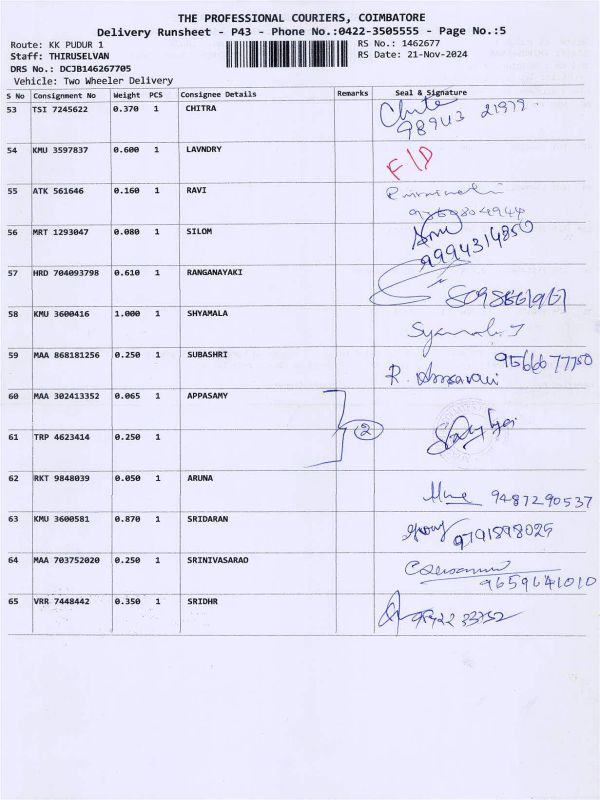 THE PROFESSIONAL COURIERS, COIMBATORE
Delivery Runsheet - P43 - Phone No.:0422-3505555 - Page No.:5
Route: KK PUDUR 1
RS No.: 1462677
Staff: THIRUSELVAN
RS Date: 21-Nov-2024
DRS No.: DCJB146267705
Vehicle: Two Wheeler Delivery
S No Consignment No Weight PCS Consignee Details Remarks Seal & Signature
53 TSI 7245622 0.370 1 CHITRA
98943 21979
54 KMU 3597837 0.600 1 LAVNDRY F/D
55 ATK 561646 0.160 1 RAVI
56 MRT 1293047 0.080 1 SILOM
9994314850
57 HRD 704093798 0.610 1 RANGANAYAKI
58 KMU 3600416 1.000 1 SHYAMALA
59 MAA 868181256 0.250 1 SUBASHRI 9566677750
60 MAA 302413352 0.065 1 APPASAMY
2
61 TRP 4623414 0.250 1
62 RKT 9848039 0.050 1 ARUNA
9487290537
63 KMU 3600581 0.870 1 SRIDARAN
9791898025
64 MAA 703752020 0.250 1 SRINIVASARAO
9659641010
65 VRR 7448442 0.350 1 SRIDHR